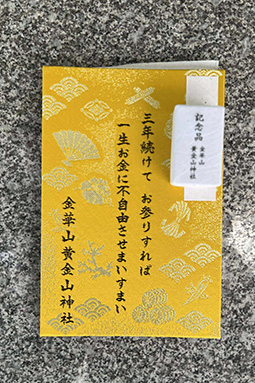 三年続けて お参りすれば
一生お金に不自由させまいすまい
金華山黄金山神社
記念品
金華山
黄金山神社